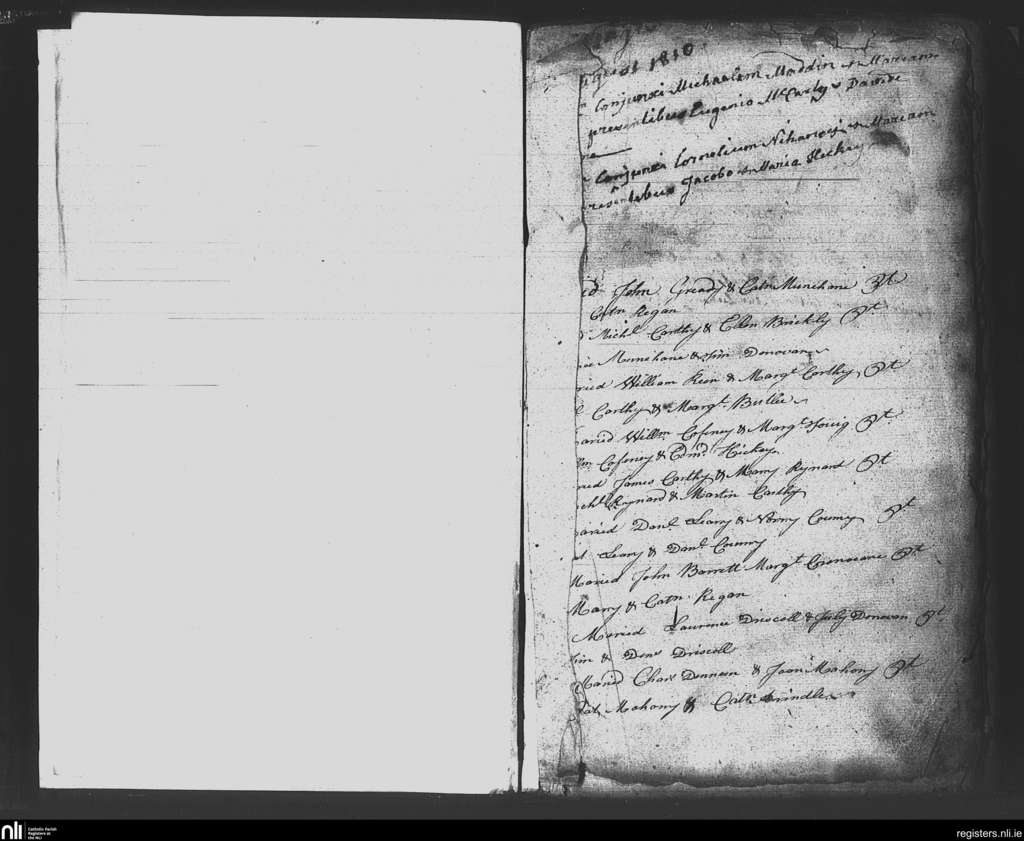 1810
Conjunxi Michaelem Maddin et Mariam
presentibus Eugenio McCarty & Davide
Conjunxi Cornelium et Mariam
presentibus Jacobo et Maria Hickey
John Gready & Catn Minehane Pt
Catn Regan
Michl Carthy & Ellen Brickly Pt
Minehane & Jim Donovan
William Keen & Margt Carthy Pt
Carthy & Margt Butler
aried Willm Cofeney & Margt Pt
Cofeney & Edmd Hickey
ried James Carthy & Mary Rynard Pt
chl Rynard & Martin Carthy
aried Danl Leary & Norry Coumey Pt
Leary & Danl Coumey
Maried John Barrett Margt Pt
Mary & Catn Regan
Maried Laurence Driscoll & July Donovan Pt
Jim & Denn Driscoll
Maried Chas Denneen & Joan Mahony Pt
Pat Mahony & Catn
nli
Catholic Parish
Registers at
the NLI
registers.nli.ie